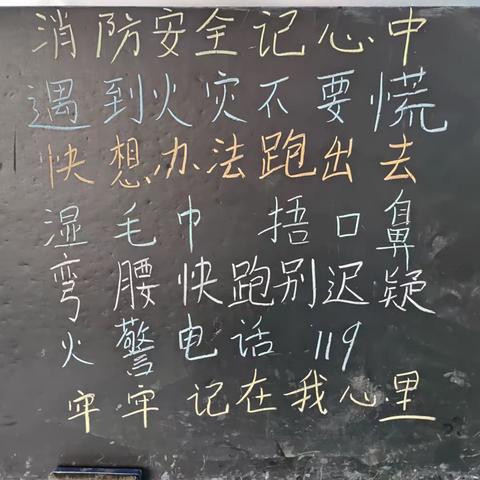 消防安全记心中
遇到火灾不要慌
快想办法跑出去
湿毛巾 捂口鼻
弯腰快跑别迟疑
火警电话 119
牢牢记在我心里